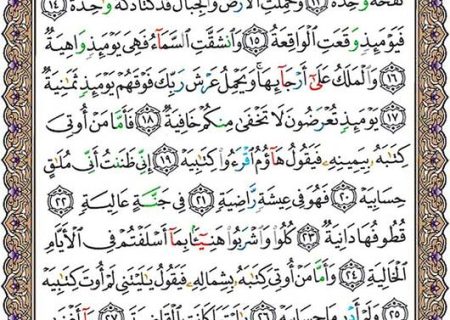 نَفْخَةٌ وَٰحِدَةٌ ١٣ وَحُمِلَتِ ٱلْأَرْضُ وَٱلْجِبَالُ فَدُكَّتَا دَكَّةً وَٰحِدَةً ١٤
فَيَوْمَئِذٍ وَقَعَتِ ٱلْوَاقِعَةُ ١٥ وَٱنشَقَّتِ ٱلسَّمَآءُ فَهِىَ يَوْمَئِذٍ وَاهِيَةٌ
١٦ وَٱلْمَلَكُ عَلَىٰٓ أَرْجَآئِهَا ۚ وَيَحْمِلُ عَرْشَ رَبِّكَ فَوْقَهُمْ يَوْمَئِذٍ ثَمَٰنِيَةٌ
١٧ يَوْمَئِذٍ تُعْرَضُونَ لَا تَخْفَىٰ مِنكُمْ خَافِيَةٌ ١٨ فَأَمَّا مَنْ أُوتِىَ
كِتَٰبَهُۥ بِيَمِينِهِۦ فَيَقُولُ هَآؤُمُ ٱقْرَءُوا۟ كِتَٰبِيَهْ ١٩ إِنِّى ظَنَنتُ أَنِّى مُلَٰقٍ
حِسَابِيَهْ ٢٠ فَهُوَ فِى عِيشَةٍ رَّاضِيَةٍ ٢١ فِى جَنَّةٍ عَالِيَةٍ ٢٢
قُطُوفُهَا دَانِيَةٌ ٢٣ كُلُوا۟ وَٱشْرَبُوا۟ هَنِيٓـًٔۢا بِمَآ أَسْلَفْتُمْ فِى ٱلْأَيَّامِ
ٱلْخَالِيَةِ ٢٤ وَأَمَّا مَنْ أُوتِىَ كِتَٰبَهُۥ بِشِمَالِهِۦ فَيَقُولُ يَٰلَيْتَنِى لَمْ أُوتَ كِتَٰبِيَهْ
٢٥ وَلَمْ أَدْرِ مَا حِسَابِيَهْ ٢٦ يَٰلَيْتَهَا كَانَتِ ٱلْقَاضِيَةَ ٢٧ مَآ أَغْنَىٰ